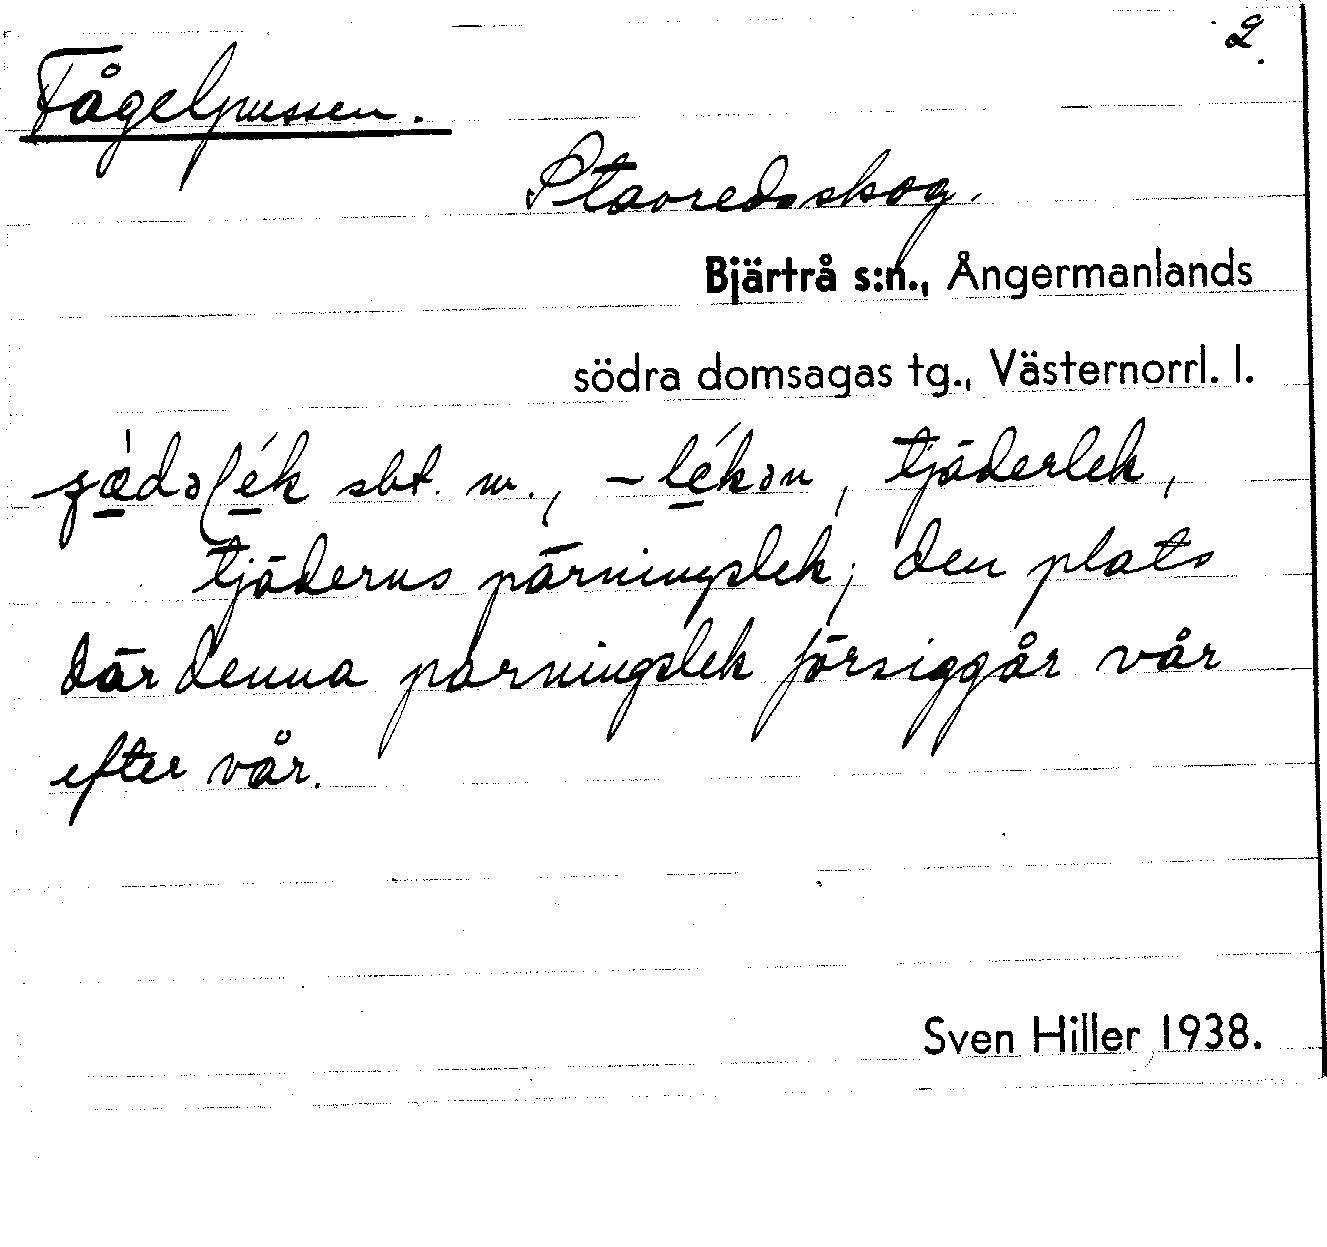 2.
Fågelpussen.
Stavredsskog.
Bjärtrå s:n., Ångermanlands
södra domsagas tg., Västernorrl. l.
sbt. m., -lékən, tjäderlek,
tjäderns parningslek; den plats
där denna parningslek försiggår vår
efter vår.
Sven Hiller 1938.